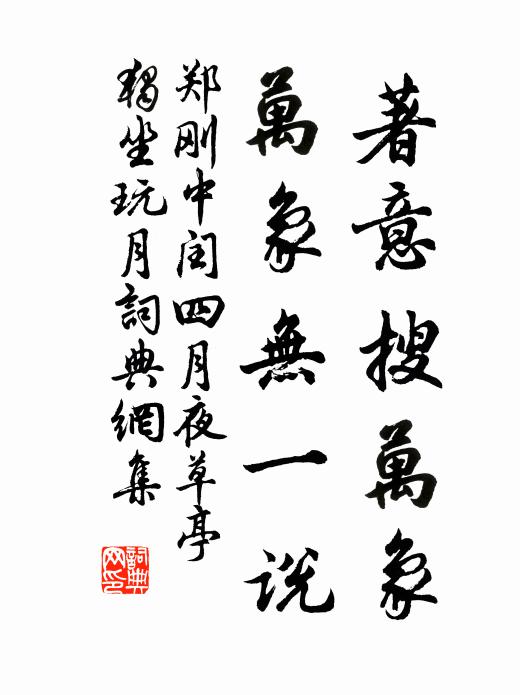 著意搜萬象
萬象無一説
郑刚中闰四月夜草亭
獨坐玩月詞典網集
詞典
网印